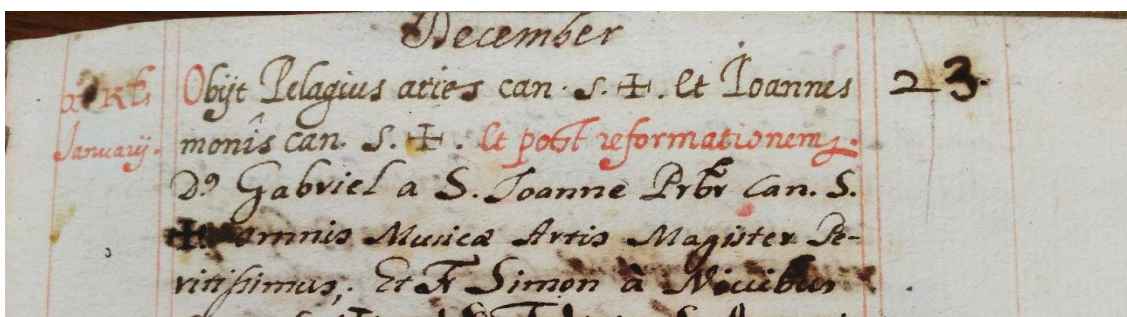 December
Kls Obijt Pelagius aries can. S. ✠. Et Joannes 23.
Januarij. monîs can. S. ✠. Et post reformationem
D.º Gabriel a S. Joanne Prbr Can. S.
✠ omnis Musicæ Artis Magister Pe-
ritissimus, Et Fr Simon à Nivibus